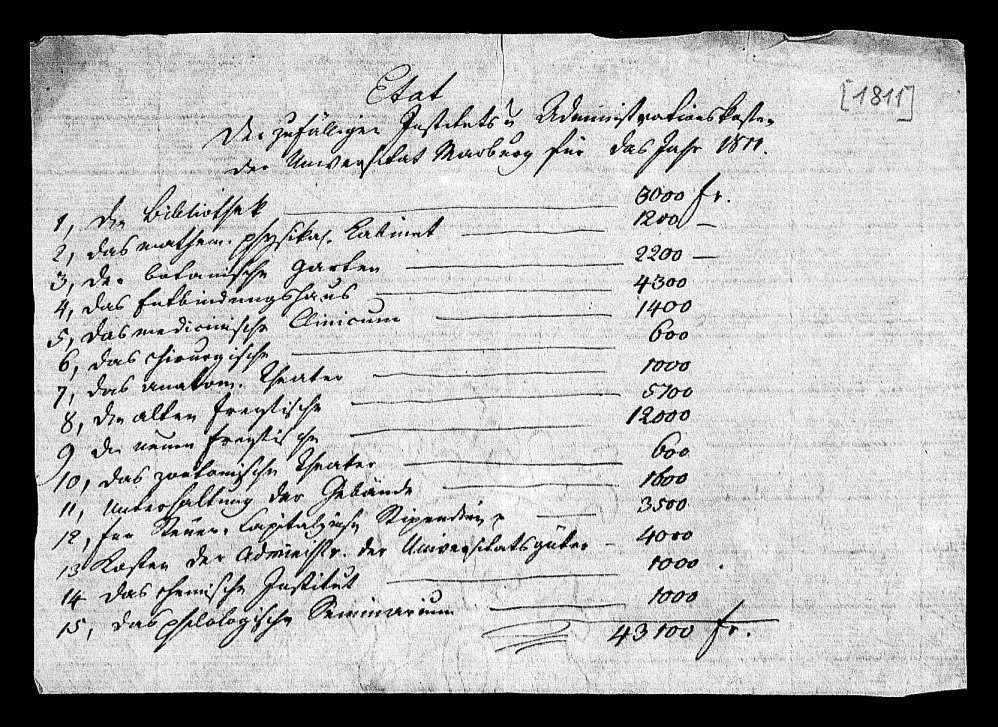 [1811]
Etat
Der zufälligen Instituts u Administrationskosten
der Universitat Marburg für das Jahr 1811.
1, Die Bibliothek 3000 fr.
2, das mathem. physikal. Cabinet 1200 —
3, der botanische Garten 2200 —
4, das Entbindungshaus 4300
5, das medicinische Clinicum 1400
6, das chirurgische 600
7, das anatom. Theater 1000
8, die alten Freytische 5700
9 die neuen Freytische 12000
10, das zootomische Theater 600
11, Unterhaltung der Gebäude 1600
12, für Steuer, Capitalzinsen Stipendien 3500
13 Kosten der Administr. der Universitatsgüter – 4000
14 das chemische Institut 1000.
15, das philologische Seminarium 1000
43100 fr.